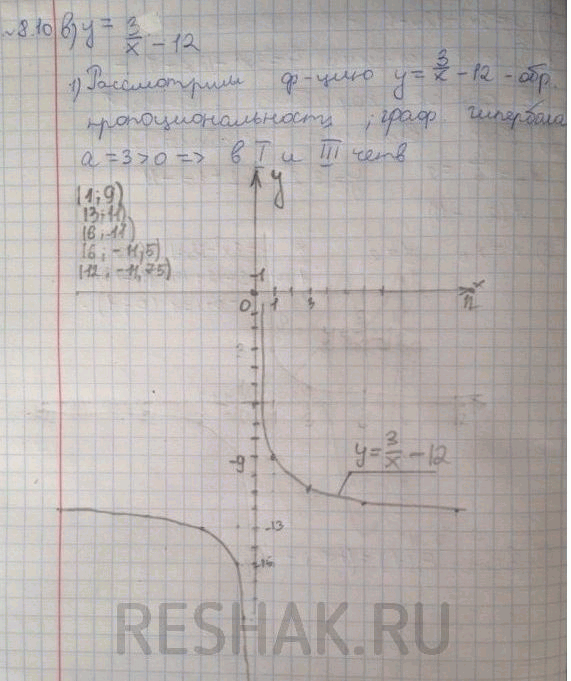 №8.10 в) y = 3/x - 12
1) Рассмотрим ф-цию y = 3/x - 12 - обр.
пропоциональность, граф. гипербола
a = 3 > 0 => в I и III четв
(1; 9)
(3; 11)
(6; -11)
(6; -11,5)
(12; -11,75)
y
1
0 1 3 12 x
-9
y = 3/x - 12
-13
-15
RESHAK.RU